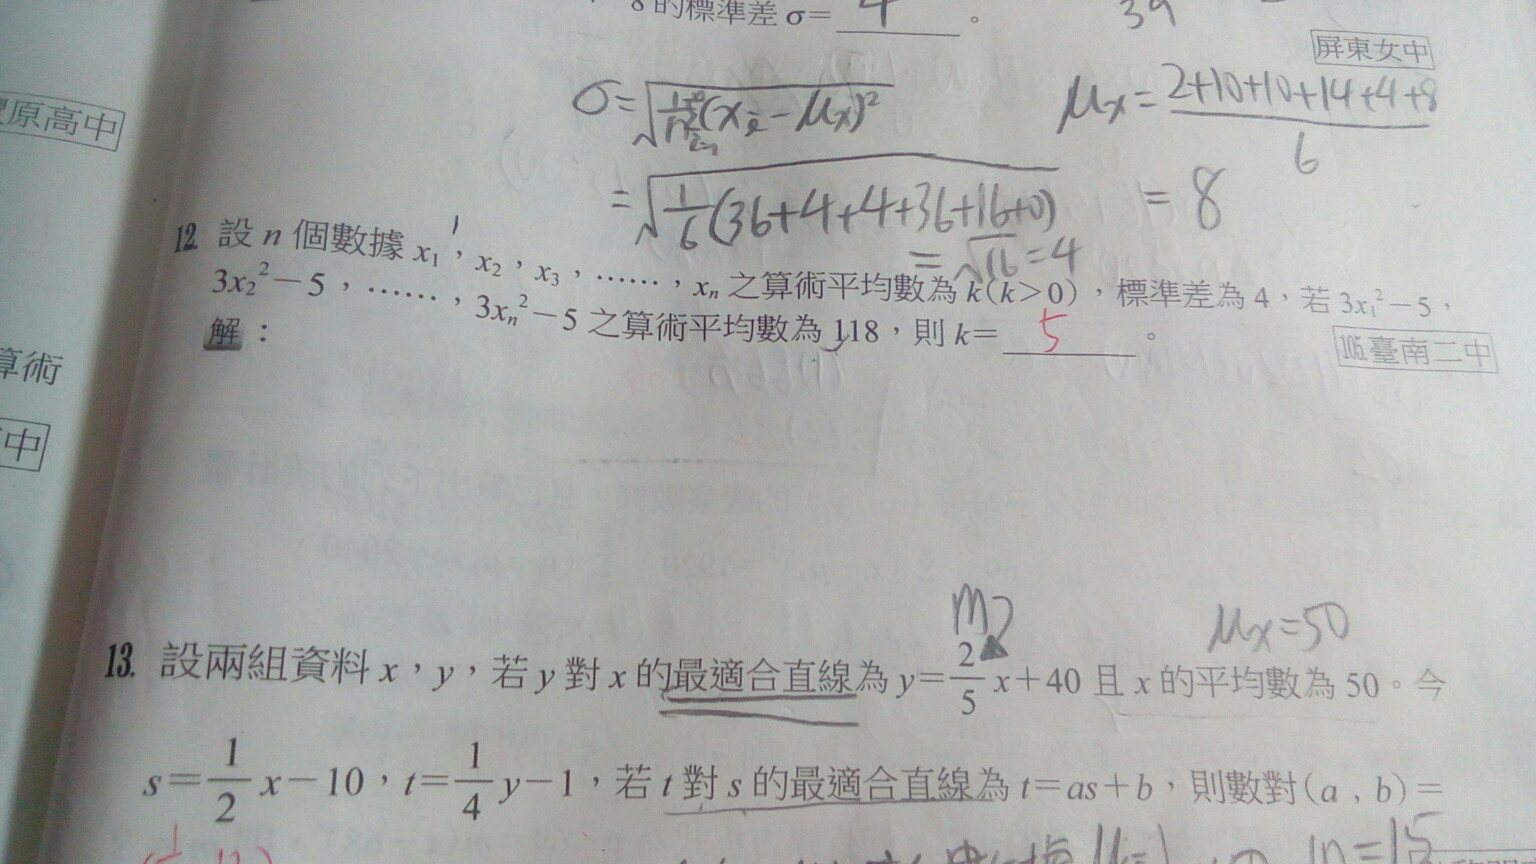 8 的標準差 σ= 4 。
39
屏東女中
原高中
μx = 2+10+10+14+4+8 / 6
= 8
= √(1/6 (36+4+4+36+16+0))
= √16 = 4
12. 設 n 個數據 x₁，x₂，x₃，……，xₙ 之算術平均數為 k(k>0)，標準差為 4，若 3x₁²−5，
3x₂²−5，……，3xₙ²−5 之算術平均數為 118，則 k= 5 。
105.臺南二中
解：
算術
中
μx=50
13. 設兩組資料 x，y，若 y 對 x 的最適合直線為 y=2/5 x+40 且 x 的平均數為 50。今
s=1/2 x−10，t=1/4 y−1，若 t 對 s 的最適合直線為 t=as+b，則數對(a , b)=